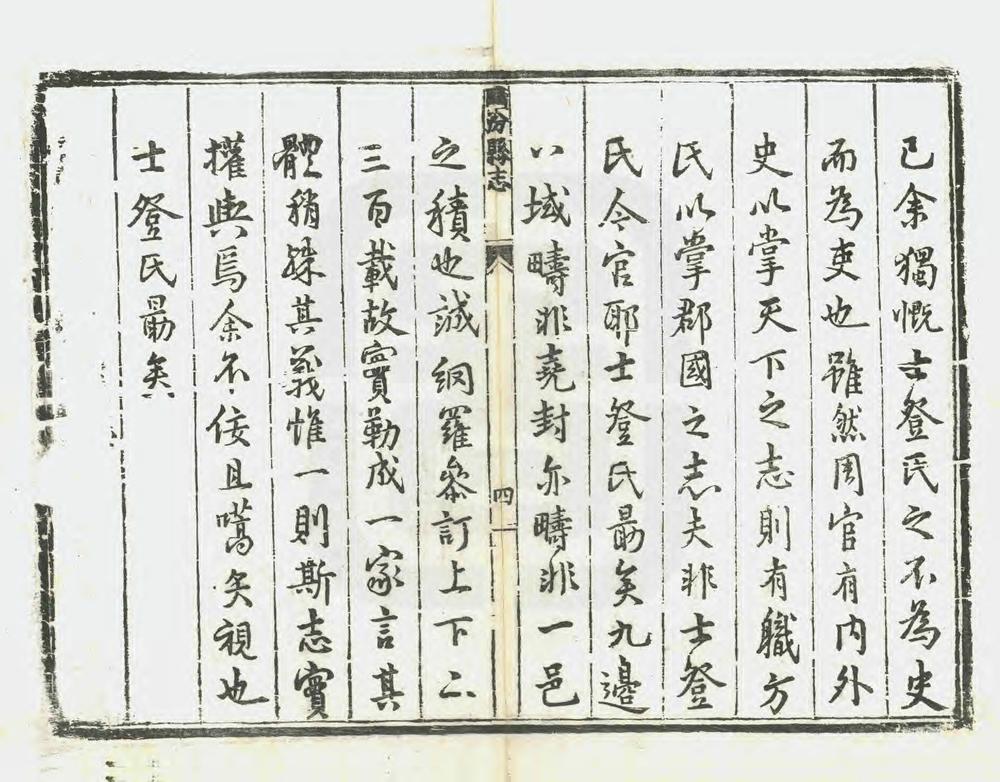 已余獨慨士登氏之不為史
而為吏也雖然周官有內外
史以掌天下之志則有職方
氏以掌郡國之志夫非士登
氏今官耶士登氏勗矣九邊
八域疇非堯封亦疇非一邑
汾縣志
四
之積也誠網羅叅訂上下二
三百載故實勒成一家言其
體稍殊其義惟一則斯志實
權輿焉余不佞且嚆矢視也
士登氏勗矣